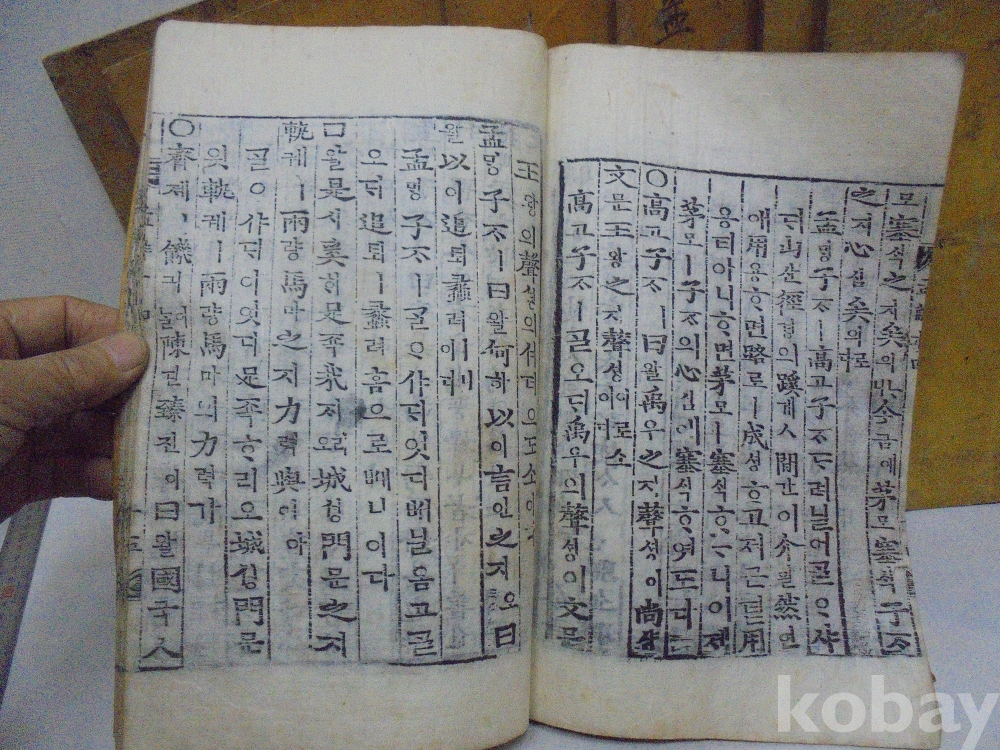 모塞ᄉᆡᆨ之지矣의今금애茅모塞ᄉᆡᆨ子ᄌᆞ
之지心심矣의로다
孟ᄆᆡᆼ子ᄌᆞㅣ高고子ᄌᆞᄃᆞ려닐어ᄀᆞᆯᄋᆞ샤
ᄃᆡ山산徑경의蹊계ㅅ間간이介알然연
애用용ᄒᆞ면路로ㅣ成셩ᄒᆞ고져근덛用
용티아니ᄒᆞ면茅모ㅣ塞ᄉᆡᆨᄒᆞᄂᆞ니이제
茅모ㅣ子ᄌᆞ의心심에塞ᄉᆡᆨᄒᆞ엿도다
○高고子ᄌᆞㅣ曰왈禹우之지聲셩이尙샹
文문王왕之지聲셩이로소이다
高고子ᄌᆞㅣᄀᆞᆯ오ᄃᆡ禹우의聲셩이文문
王왕의聲셩의셔더으도소이다
孟ᄆᆡᆼ子ᄌᆞㅣ曰왈何하以이言언之지오曰
왈以이追퇴蠡려ㅣ니이다
孟ᄆᆡᆼ子ᄌᆞㅣᄀᆞᆯᄋᆞ샤ᄃᆡ엇디ᄡᅥ닐옴고ᄀᆞᆯ
으ᄃᆡ追퇴ㅣ蠡려홈으로ᄡᅥ니이다
曰왈是시奚ᄒᆡ足죡哉ᄌᆡ리오城셩門문之지
軌궤ㅣ兩량馬마之지力력與여아
ᄀᆞᆯᄋᆞ샤ᄃᆡ이엇디足죡ᄒᆞ리오城셩門문
읫軌궤ㅣ兩량馬마의力력가
○齊제ㅣ饑긔어ᄂᆞᆯ陳딘臻진이曰왈國국人
kobay